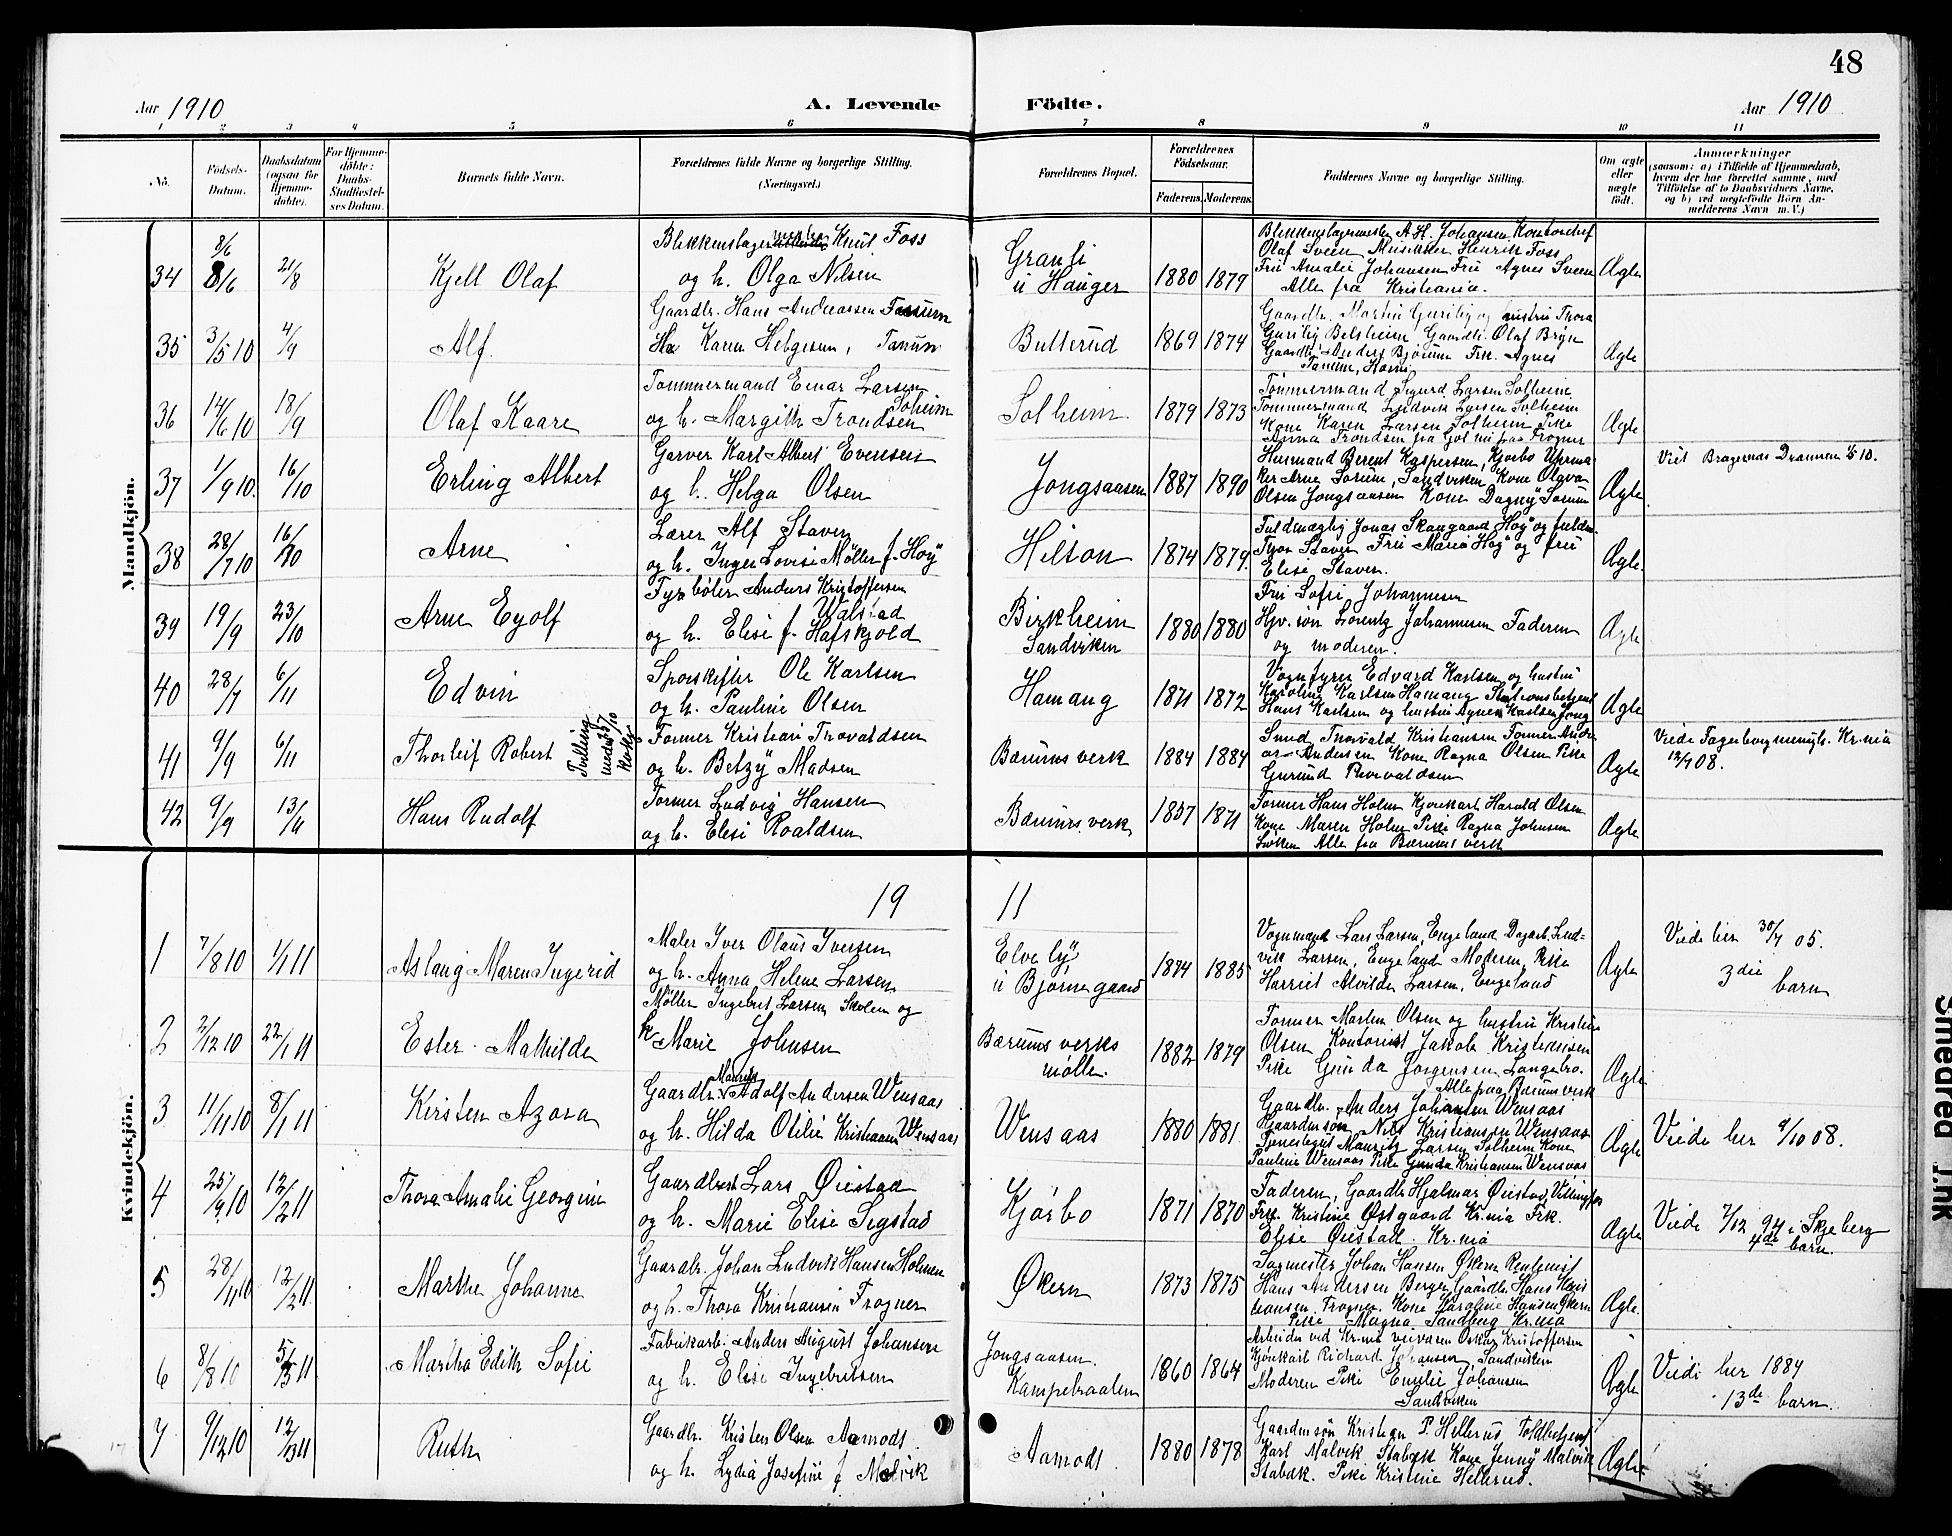 48
Aar 1910
A. Levende
Födte.
Aar 1910
1 2 3 4 5 6 7 8 9 10 11
No.
Födsels-Datum.
Daabsdatum (ogsaa for Hjemme-döbte).
For Hjemme-döbte: Daabs-Stadfæstelses Datum.
Barnets fulde Navn.
Forældrenes fulde Navne og borgerlige Stilling. (Næringsvei.)
Forældrenes Bopæl.
Forældrenes Födselsaar.
Faderens. Moderens.
Faddernes Navne og borgerlige Stilling.
Om ægte eller uægte födt.
Anmærkninger
(saasom: a) i Tilfælde af Hjemmedaab, hvem der har forrettet samme, med Tilföielse af to Daabsvidners Navne, og b) ved uægtefödte Börn Anmelderens Navn m. V.)
Mandkjön.
34 8/6 8/6 21/8 Kjell Olaf
Blikkenslagermester Knut Foss
og h. Olga Nilsen
Granli
u Hauger
1880 1879
Blikkenslagermester A. H. Johansen Kontorchef
Olaf Sveen Musikker Henrik Foss
Fru Amalie Johansen Fru Agnes Sveen
Alle fra Kristiania.
Ægte
35 3/5 10 4/9 Alf.
Gaardbr. Hans Andreassen Tanum
Karen Helgesen, Tanum
Butterud
1869 1874
Gaardbr. Martin Gursby og hustru Thora
Gaardbr. Olaf Bryn
Gaardbr. Anders Bjørum Frk. Agnes
Tanum, Horni
Ægte
36 14/6 10 18/9 Olaf Kaare
Tømmermand Einar Larsen
Solheim
og h. Margith Trondsen
Solheim
1879 1873
Tømmermand Sigurd Larsen Solheim
Tømmermand Ludvik Larsen Solheim
Kone Karen Larsen Solheim Pike
Anna Trondsen fra Gol nu paa Frogner
Ægte
37 1/9 10. 16/10 Erling Albert
Garver Karl Albert Evensen
og h. Helga Olsen
Jongsaasen
1887 1890
Husmand Berent Kaspersen, Kjørbo Urma-
ker Arne Sørum, Sandviken Kone Olava
Olsen Jongsaasen Kone Dagny Sørum
Ægte
Viet Bragernes Drammen 1/5 10.
38 28/7 10 16/10 Arne
Lærer Alf Staver
og h. Inger Lovise Møller f. Høy
Hilton
1874 1879.
Fuldmægtig Jonas Skougaard Høy og
Thor Staver Fru Maria Høy og fru
Elise Staver.
Ægte.
39 19/9 23/10 Arne Eyolf
Fyrbøter Anders Kristoffersen
Walstad
og h. Elise f. Hafskjold
Birkheim
Sandviken
1880 1880
Fru Sofie Johannesen
Hjv. søn Lorentz Johannesen Faderen
og moderen.
Ægte
40 28/7 6/11 Edvin
Sporskifter Ole Karlsen
og h. Pauline Olsen
Hamang
1871 1872
Vognfyrer Edvard Karlsen og hustru
Karoline Karlsen Hamang Stationsbetjent
Hans Karlsen og hustru Agnes Karlsen Jong
Ægte
41 9/9 6/11 Thorleif Robert
Tvilling
Former Kristian Torvaldsen
og h. Betzy Madsen
Bærums verk
1884 1884
Smed Thorvald Kristiansen Former Andre
as Andersen Kone Ragna Olsen Pike
Gurund Thorvaldsen
Ægte
Viede Fagerborg menigh. Kr.nia
12/7 08.
42 9/9 13/11 Hans Rudolf
Former Ludvig Hansen
og h. Elise Roaldsen
Bærums verk
1857 1871
Former Hans Holm Kjørekarl Harald Olsen
Kone Maren Holm Pike Ragna Johnsen
Alle fra Bærums verk
Ægte
19 11
Kvindekjön.
1 7/8 10 1/1 11 Aslaug Maren Ingerid
Maler Iver Olaus Iversen
og h. Anna Helene Larsen
Elvely
u Bjørnegaard
1874 1885
Vognmand Lars Larsen, Engeland Dagarb. Lud-
vik Larsen, Engeland Moderen, Pike
Harriet Alvilde Larsen, Engeland
Ægte
Viede her 30/7 05.
3die barn
2 2/12 10 22/1 11 Ester Mathilde
Møller Ingebret Larsen Skolem og
h. Marie Johnsen
Bærums verks
mølle.
1882 1879
Former Martin Olsen og hustru Kristine
Olsen Kontorist Jakob Kristiansen
Pike Gunda Jørgensen Langebro.
Alle paa Bærums verk
Ægte
3 11/11 10 8/1 11 Kirsten Azora
Gaardbr. Mauritz Adolf Andersen Wensaas
og h. Hilda Otilie Kristiansen Wensaas
Wensaas
1880 1881.
Gaardbr. Anders Johansen Wensaas
Gaardmsøn Nils Kristiansen Wensaas
Tjenestegut Mauritz Larsen Solheim Kone
Pauline Wensaas Pike Gunda Kristiansen Wensaas
Ægte
Viede her 9/10 08.
4 25/9 10 12/2 11 Thora Amalie Georgine
Gaardbest Lars Øiestad
og h. Marie Elise Segstad
Kjørbo
1871 1870
Faderen, Gaardbr Hjalmar Øiestad,
Frk. Kristine Østgaard Kr.nia Frk.
Elise Øiestad. Kr.nia
Ægte
Viede 7/12 94 i Skjeberg
4de barn.
5 28/11 10 12/2 11 Marthe Johanne
Gaardbr. Johan Ludvik Hansen Holmen
og h. Thora Kristiansen Frogner
Økern
1873 1875
Sagmester Johan Hansen Økern
Hans Andersen Berger, Gaardbr. Hans Kris
tiansen Frogner. Kone Karoline Hansen Økern
Pike Magna Sandberg Kr.nia
Ægte.
6 8/8 10 5/3 11 Martha Edith Sofie
Fabrikarb. Anders August Johansen
og h. Elise Ingebretsen
Jongsaasen.
Kampebraaten
1860 1864
Arbeider ved Kr.nia veivæsen Oskar Kristoffersen
Kjørekarl Richard Johansen Sandviken
Moderen Pike Emilie Johansen
Sandviken
Ægte
Viede her 1884
13de barn.
7 9/12 10 12/3 11 Ruth
Gaardbr. Kristen Olsen Aamodt.
og h. Lydia Josefine f. Malvik
Aamodt.
1880 1878
Gaardmsøn Kristian P. Hellerud Toldbetjent
Karl Malvik Stabæk Kone Jenny Malvik
Stabæk. Pike Kristine Hellerud.
Ægte